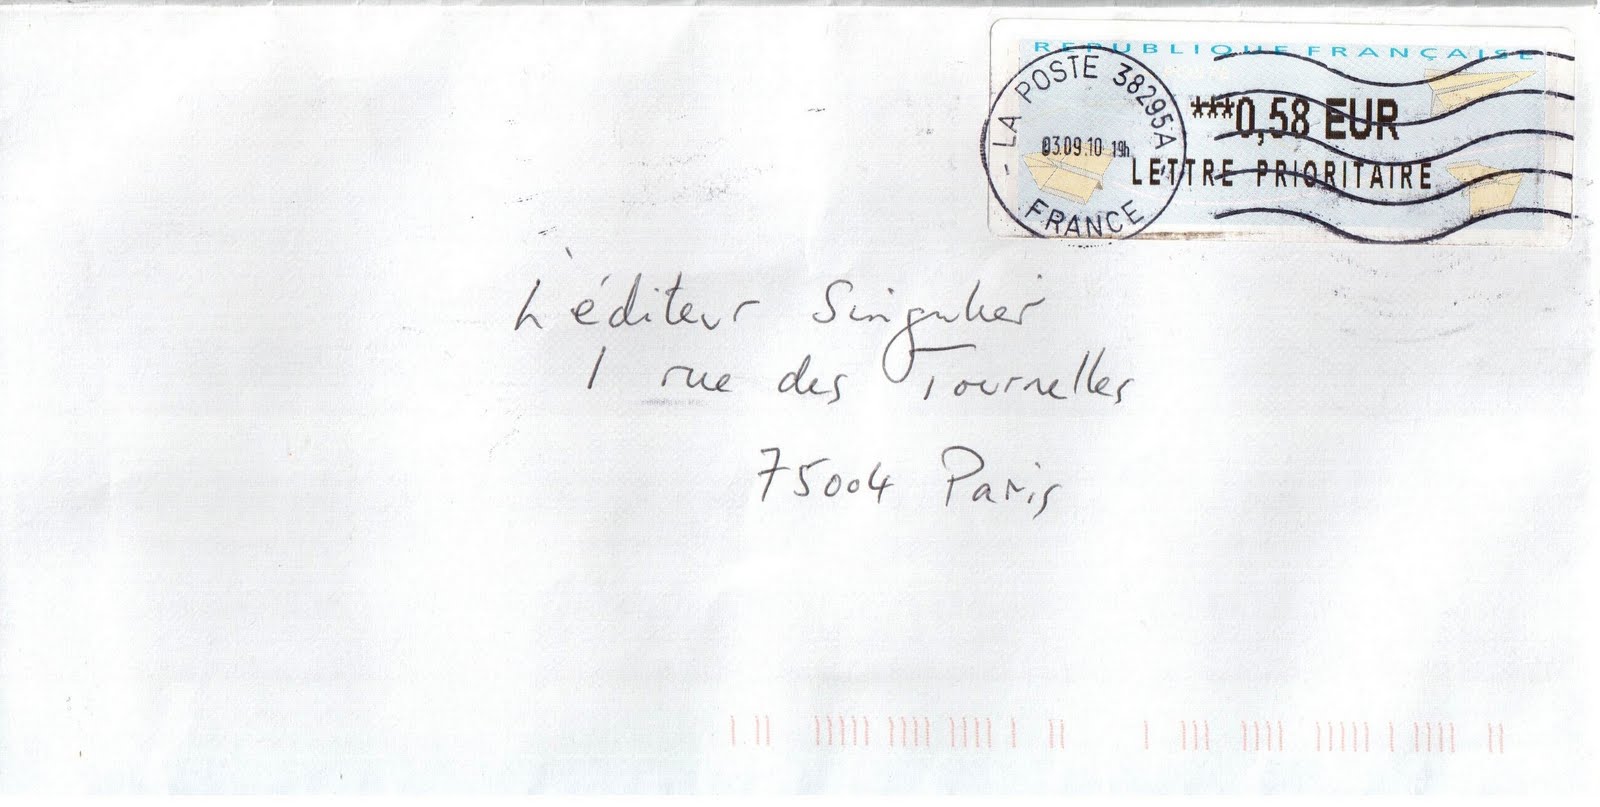 REPUBLIQUE FRANÇAISE
***0,58 EUR
LETTRE PRIORITAIRE
- LA POSTE 38295A -
03.09.10 19h
FRANCE
L'éditeur Singulier
1 rue des Tournelles
75004 Paris